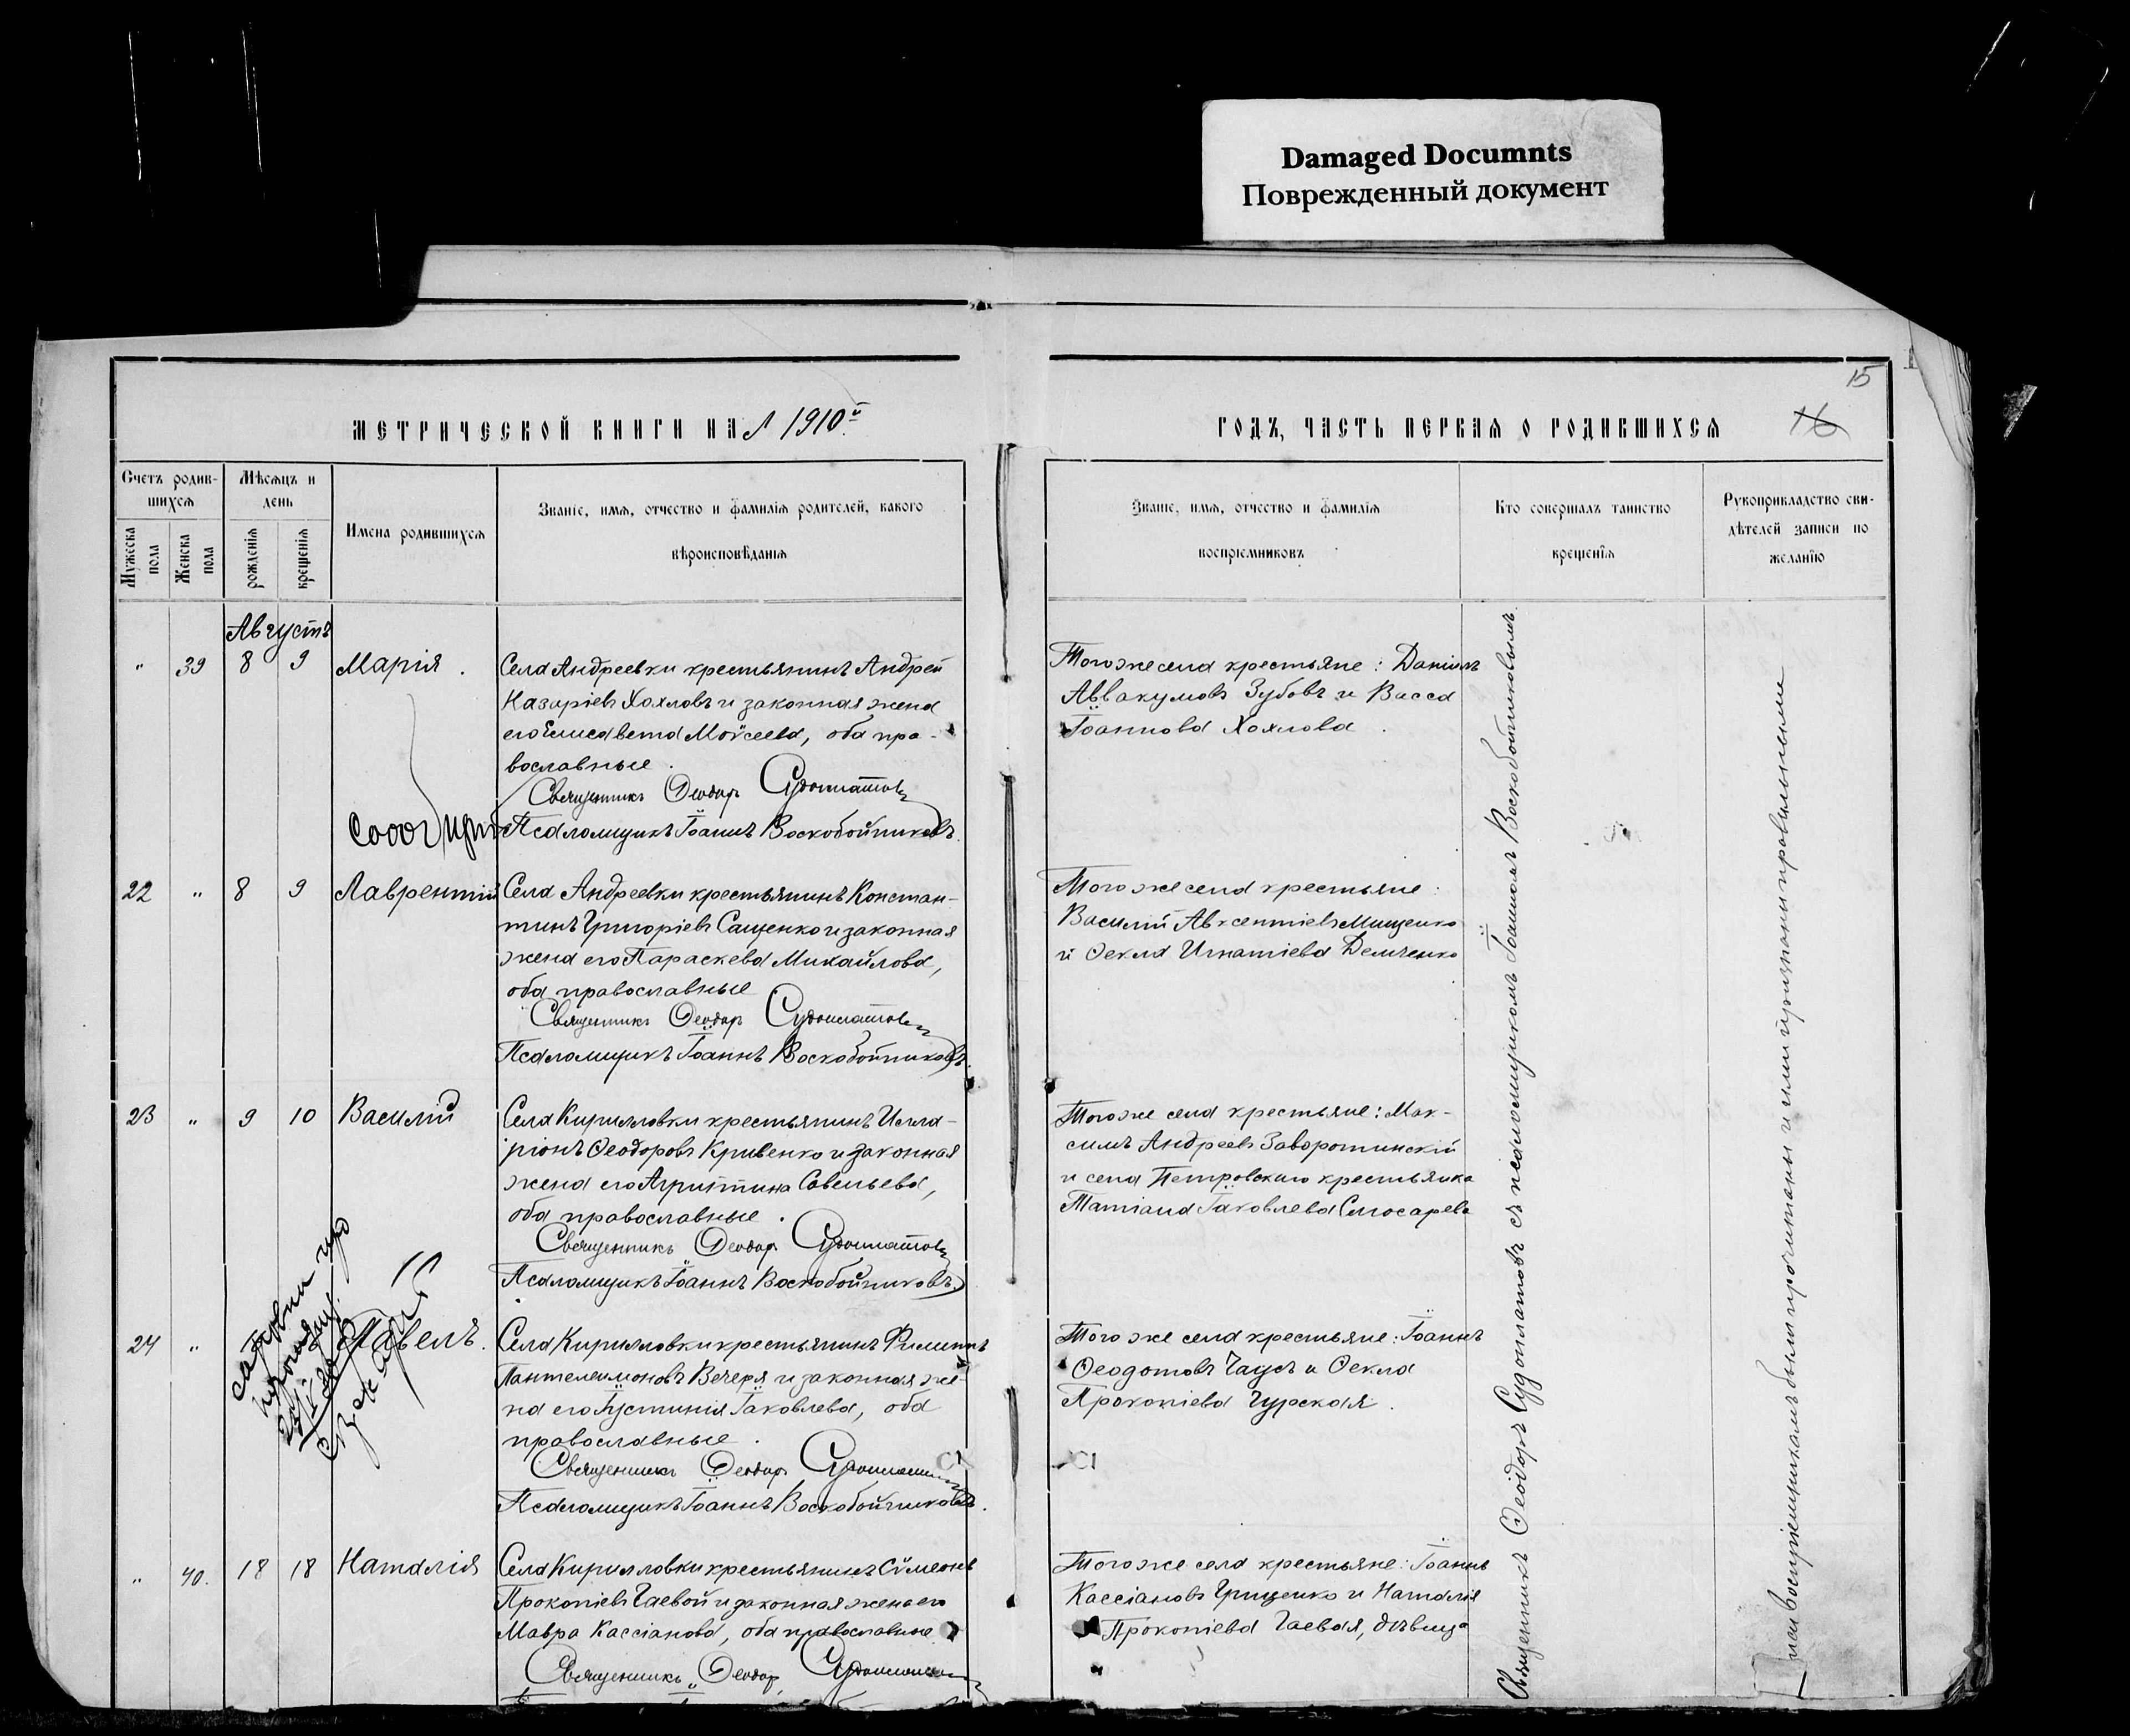 Damaged Documnts
Поврежденный документ
15
16
МЕТРИЧЕСКОЙ КНИГИ НА 1910й
ГОДЪ, ЧАСТЬ ПЕРВАЯ О РОДИВШИХСЯ
Счетъ родив-
шихся
Мужеска пола
Женска пола
Мѣсяцъ и
день
рожденія
крещенія
Имена родившихся
Званіе, имя, отчество и фамилія родителей, какого
вѣроисповѣданія
Званіе, имя, отчество и фамилія
воспріемниковъ
Кто совершалъ таинство
крещенія
Рукоприкладство сви-
дѣтелей записи по
желанію
Августъ
" 39 8 9 Марія.
Села Андреевки крестьянинъ Андрей
Назаріевъ Хохловъ и законная жена
его Елисавета Моѵсеева, оба пра-
вославные.
Священникъ Ѳеодоръ Судоплатовъ
Псаломщикъ Іоаннъ Воскобойниковъ.
Того же села крестьяне: Даніилъ
Аввакумовъ Зубовъ и Васса
Іоаннова Хохлова.
22 " 8 9 Лаврентій
Села Андреевки крестьянинъ Констан-
тинъ Григоріевъ Сащенко и законная
жена его Параскева Михайлова,
оба православные
Священникъ Ѳеодоръ Судоплатовъ
Псаломщикъ Іоаннъ Воскобойниковъ.
Того же села крестьяне:
Василій Авксентіевъ Мищенко
и Ѳекла Игнатіева Демченко
23 " 9 10 Василій
Села Кирилловки крестьянинъ Илла-
ріонъ Ѳеодоровъ Кривенко и законная
жена его Агриппина Савельева,
оба православные.
Священникъ Ѳеодоръ Судоплатовъ
Псаломщикъ Іоаннъ Воскобойниковъ.
Того же села крестьяне: Мак-
симъ Андреевъ Заворотинскій
и села Петровскаго крестьянка
Татіана Іаковлева Слюсарева
24 " Павелъ.
Села Кирилловки крестьянинъ Филиппъ
Пантелеимоновъ Вечеря и законная же-
на его Іустинія Іаковлева, оба
православные.
Священникъ Ѳеодоръ Судоплатовъ
Псаломщикъ Іоаннъ Воскобойниковъ.
Того же села крестьяне: Іоаннъ
Ѳеодотовъ и Ѳекла
Прокопіева Гурская.
" 40. 18 18 Наталія
Села Кирилловки крестьянинъ Сѵмеонъ
Прокопіевъ Гаевой и законная жена его
Мавра Кассіанова, оба православные
Священникъ Ѳеодоръ Судоплатовъ
Того же села крестьяне: Іоаннъ
Кассіановъ Грищенко и Наталія
Прокопіева Гаевая, дѣвица
Священникъ Ѳеодоръ Судоплатовъ съ псаломщикомъ Іоанномъ Воскобойниковымъ.
воспріемникамъ были прочитаны и ими признаны правильными